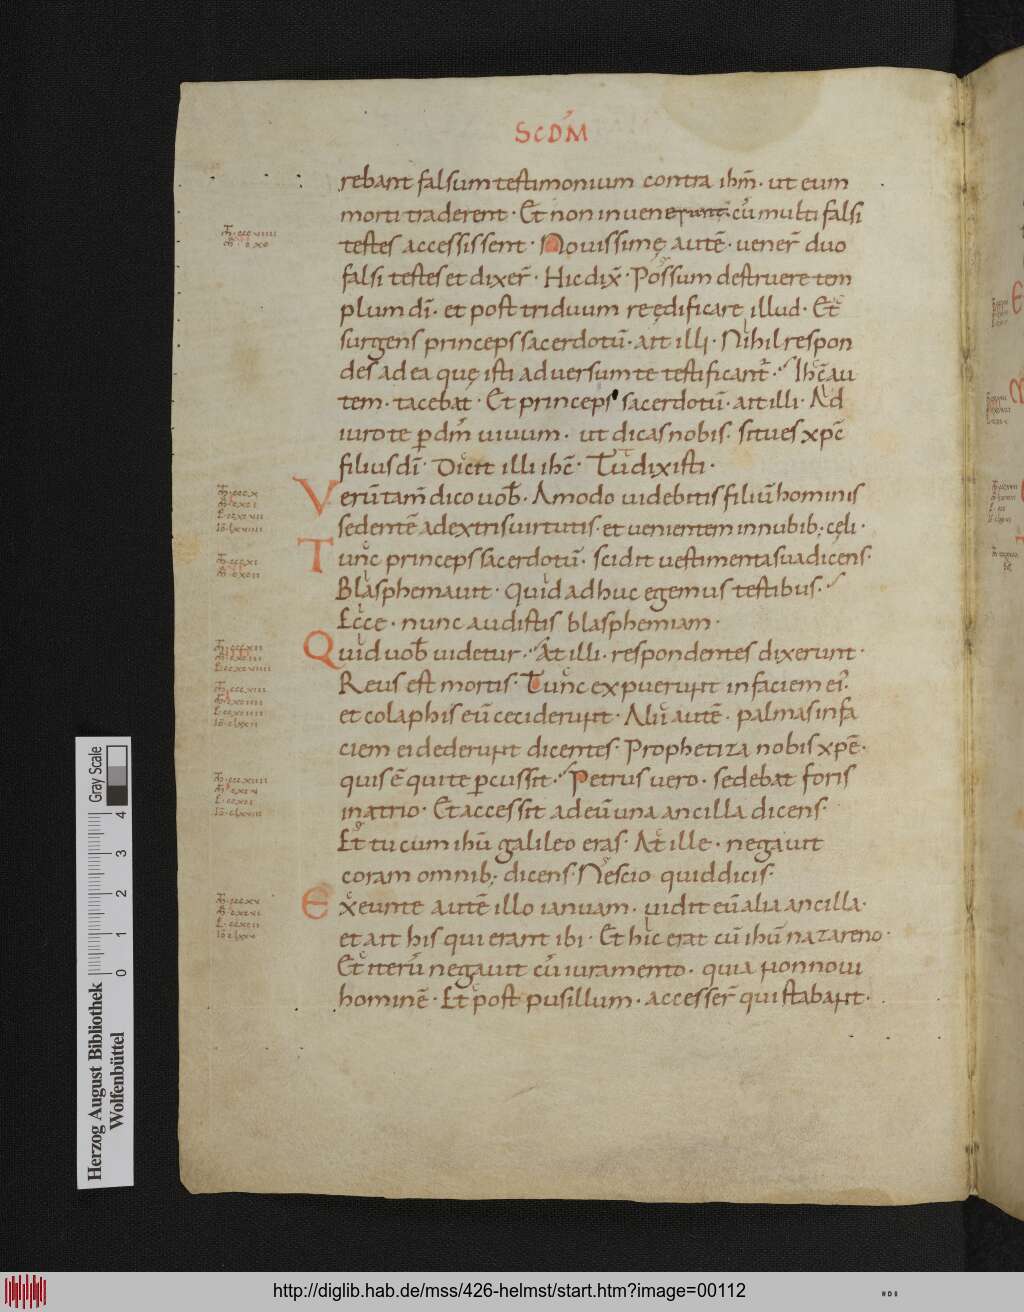 SCDM̄
rebant falsum testimonium contra ihm̄· ut eum
morti traderent· Et non invenerunt· cū multi falsi
testes accessissent· Novissimę autē· vener̄ duo
falsi testes et dixer̄· Hic dix̄· Possum destruere tem
plum dī· et post triduum reędificare illud· Et
surgens princeps sacerdotū· ait illi· Nihil respon
des ad ea quę isti adversum te testificant̄· Ihc̄ au
tem· tacebat· Et princeps sacerdotū· ait illi· Ad
iuro te p dm̄ vivum· ut dicas nobis· si tu es xpc̄
filius dī· Dicit illi ihc̄· Tu dixisti·
Verūtam̄ dico vob̄· Amodo videbitis filiū hominis
sedentē ad extris virtutis· et venientem in nubib; cęli·
Tunc princeps sacerdotū· scidit vestimenta sua dicens·
Blasphemavit· Quid adhuc egemus testibus·
Ecce· nunc audistis blasphemiam·
Quid vob̄ videtur· At illi· respondentes dixerunt·
Reus est mortis· Tunc expuerunt in faciem ei·
et colaphis eū ceciderunt· Alii autē· palmas in fa
ciem ei dederunt dicentes· Prophetiza nobis xpē·
quis ē qui te pcussit· Petrus vero· sedebat foris
in atrio· Et accessit ad eū una ancilla dicens·
Et tu cum ihū galileo eras· At ille· negavit
coram omnib; dicens· Nescio quid dicis·
Exeunte autē illo ianuam· vidit eū alia ancilla·
et ait his qui erant ibi· Et hic erat cū ihū nazareno·
Et iterū negavit cū iuramento· quia non novi
hominē· Et post pusillum· accesser̄ qui stabant·
Herzog August Bibliothek
Wolfenbüttel
0 1 2 3 4
Gray Scale
http://diglib.hab.de/mss/426-helmst/start.htm?image=00112